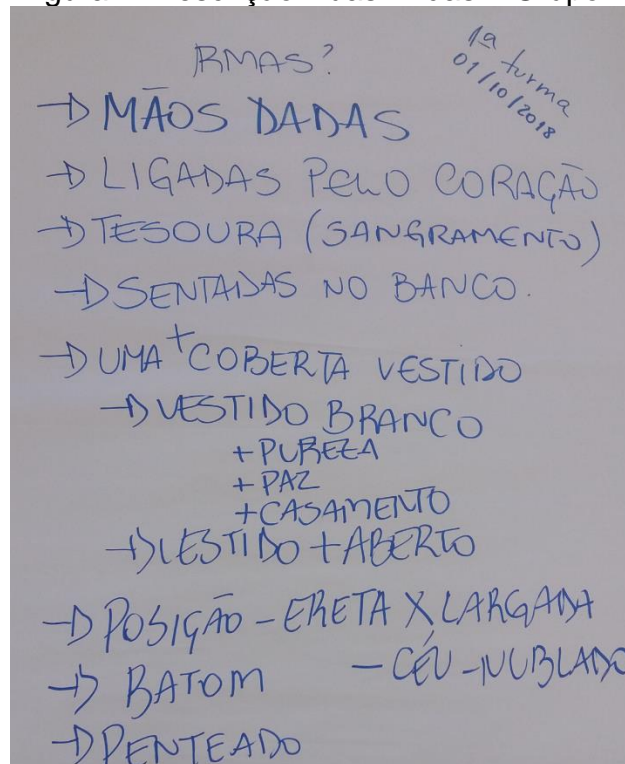 RMAS?
1ª turma
01/10/2018
→ MÃOS DADAS
→ LIGADAS PELO CORAÇÃO
→ TESOURA (SANGRAMENTO)
→ SENTADAS NO BANCO.
→ UMA + COBERTA VESTIDO
→ VESTIDO BRANCO
+ PUREZA
+ PAZ
+ CASAMENTO
→ VESTIDO + ABERTO
→ POSIÇÃO - ERETA X LARGADA
→ BATOM - CÉU - NUBLADO
→ PENTEADO